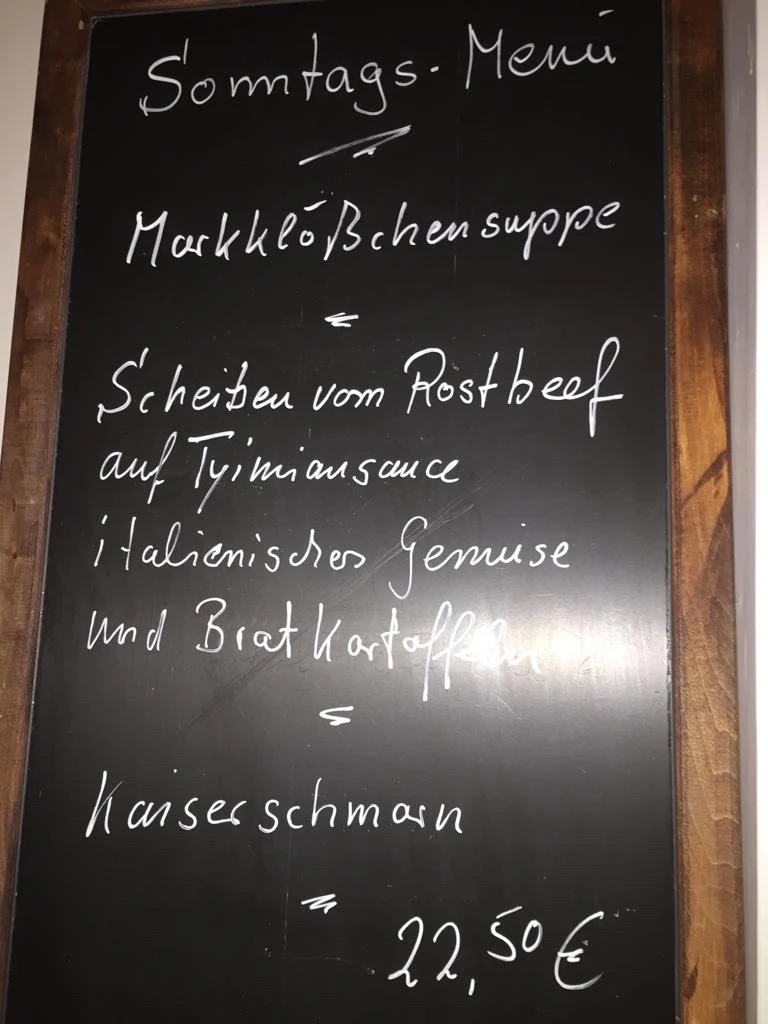 Sonntags-Menü
Markklößchensuppe
Scheiben vom Rostbeef
auf Tyimiansauce
italienisches Gemüse
und Bratkartoffeln
Kaiserschmarn
22,50 €